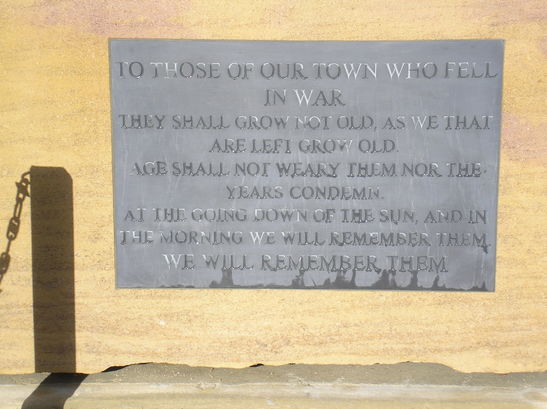 TO THOSE OF OUR TOWN WHO FELL
IN WAR
THEY SHALL GROW NOT OLD, AS WE THAT
ARE LEFT GROW OLD.
AGE SHALL NOT WEARY THEM NOR THE
YEARS CONDEMN.
AT THE GOING DOWN OF THE SUN, AND IN
THE MORNING WE WILL REMEMBER THEM
WE WILL REMEMBER THEM